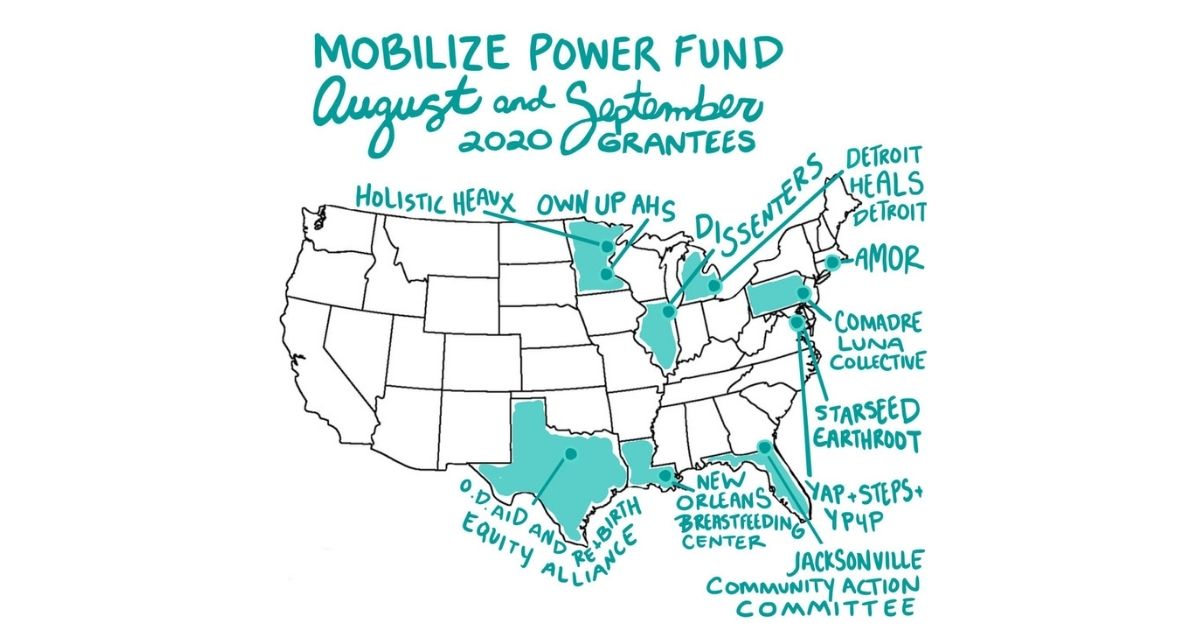 MOBILIZE POWER FUND
August and September
2020 GRANTEES
HOLISTIC HEAUX
OWN UP AHS
DISSENTERS
DETROIT
HEALS
DETROIT
AMOR
COMADRE
LUNA
COLLECTIVE
STARSEED
EARTHROOT
YAP+STEPS+
YP4P
JACKSONVILLE
COMMUNITY ACTION
COMMITTEE
NEW
ORLEANS
BREASTFEEDING
CENTER
O.D. AID AND RE+BIRTH
EQUITY ALLIANCE